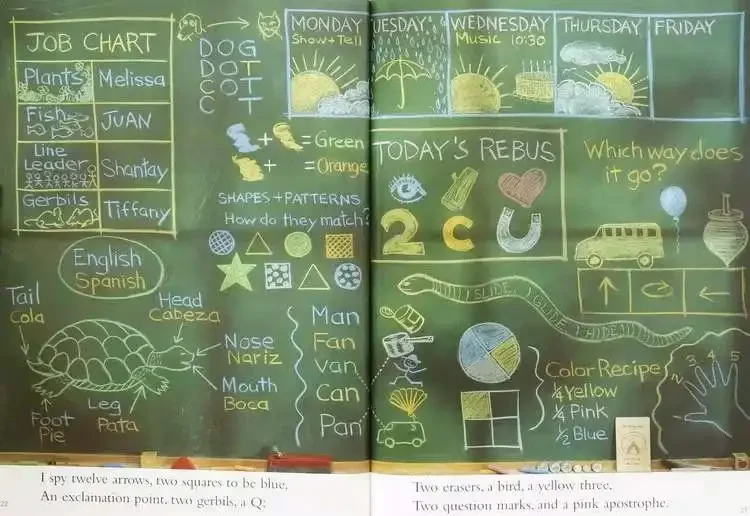 JOB CHART
Plants Melissa
Fish JUAN
Line Leader Shantay
Gerbils Tiffany
DOG
DOT
COT
C T
MONDAY
Show + Tell
UESDAY
WEDNESDAY
Music 10:30
THURSDAY
FRIDAY
+ = Green
+ = Orange
SHAPES + PATTERNS
How do they match?
TODAY'S REBUS
2 C U
Which way does
it go?
English
Spanish
Tail
Cola
Head
Cabeza
Nose
Nariz
Mouth
Boca
Leg
Pata
Foot
Pie
Man
Fan
Van
Can
Pan
I SLIDE, I GLIDE, I HIDE!!!!
Color Recipe
¼ Yellow
¼ Pink
½ Blue
2 3 4 5
I spy twelve arrows, two squares to be blue,
An exclamation point, two gerbils, a Q;
Two erasers, a bird, a yellow three,
Two question marks, and a pink apostrophe.
22